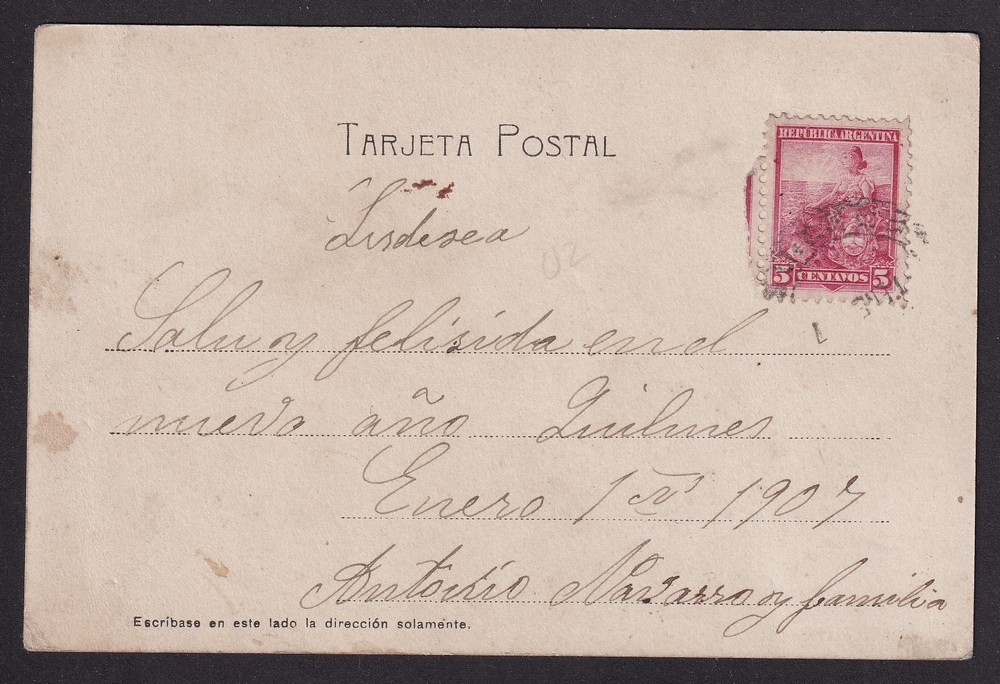 TARJETA POSTAL
REPÚBLICA ARGENTINA
5 CENTAVOS 5
Lesdesea
02
Salu y felisida en el
nuevo año Quilmes
Enero 1 1907
Antonio Navarro y familia
Escríbase en este lado la dirección solamente.